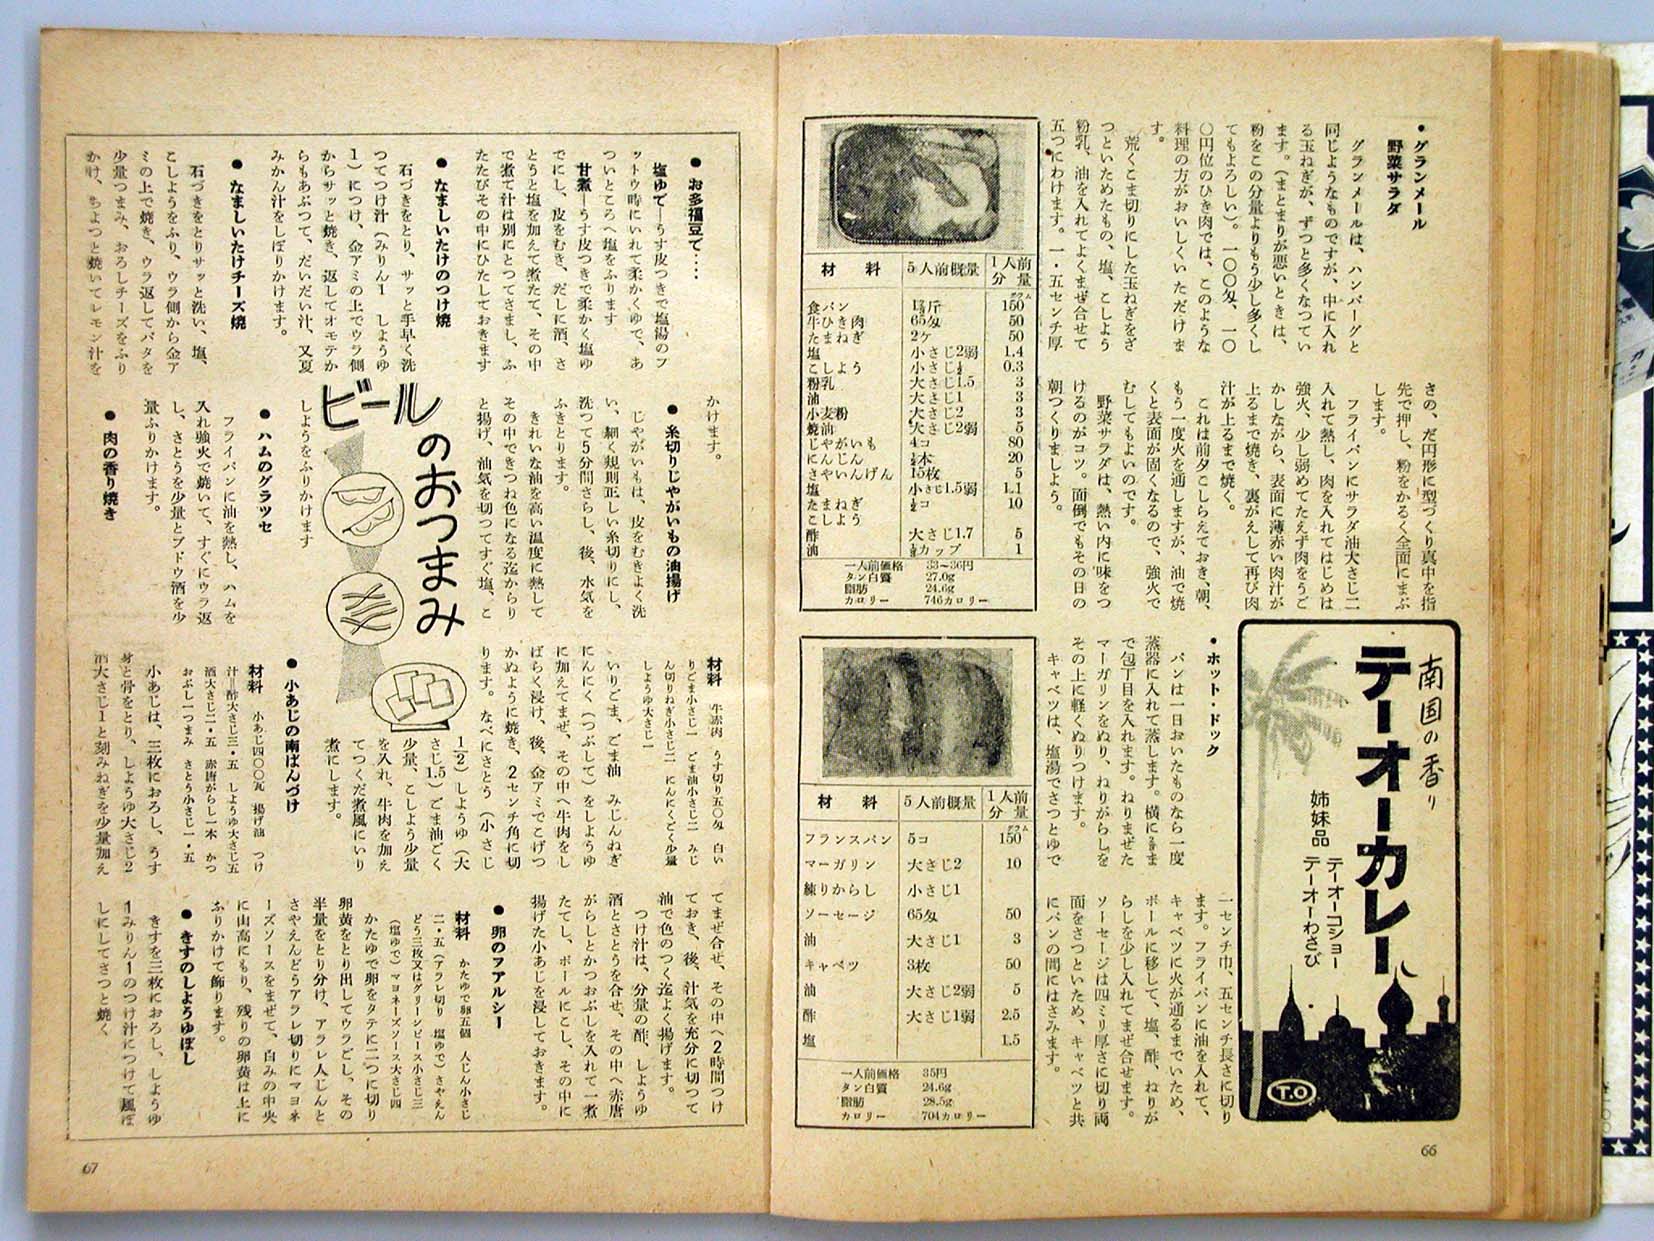 ・グランメール
野菜サラダ
グランメールは、ハンバーグと
同じようなものですが、中に入れ
る玉ねぎが、ずつと多くなつてい
ます。(まとまりが悪いときは、
粉をこの分量よりもう少し多くし
てもよろしい)。一〇〇匁、一〇
〇円位のひき肉では、このような
料理の方がおいしくいただけま
す。
荒くこま切りにした玉ねぎをざ
つといためたもの、塩、こしよう
粉乳、油を入れてよくまぜ合せて
五つにわけます。一・五センチ厚
さの、だ円形に型づくり真中を指
先で押し、粉をかるく全面にまぶ
します。
フライパンにサラダ油大さじ二
入れて熱し、肉を入れてはじめは
強火、少し弱めてたえず肉をうご
かしながら、表面に薄赤い肉汁が
上るまで焼き、裏がえして再び肉
汁が上るまで焼く。
これは前夕こしらえておき、朝、
もう一度火を通しますが、油で焼
くと表面が固くなるので、強火で
むしてもよいのです。
野菜サラダは、熱い内に味をつ
けるのがコツ。面倒でもその日の
朝つくりましよう。
材料 5人前概量 1人前分量
グラム
食パン 斤 150
牛ひき肉 65匁 50
たまねぎ 2ケ 50
塩 小さじ2弱 1.4
こしよう 小さじ½ 0.3
粉乳 大さじ1.5 3
油 大さじ1 3
小麦粉 大さじ2 3
醤油 大さじ2弱 5
じやがいも 4コ 80
にんじん ½本 20
さやいんげん 15枚 5
塩 小さじ1.5弱 1.1
たまねぎ ½コ 10
こしよう
酢 大さじ1.7 5
油 カップ 1
一人前価格 33〜36円
タン白質 27.0g
脂肪 24.6g
カロリー 746カロリー
・ホット・ドック
パンは一日おいたものなら一度
蒸器に入れて蒸します。横に
で包丁目を入れます。ねりまぜた
マーガリンをぬり、ねりがらしを
その上に軽くぬりつけます。
キャベツは、塩湯でさつとゆで
一センチ巾、五センチ長さに切り
ます。フライパンに油を入れて、
キャベツに火が通るまでいため、
ボールに移して、塩、酢、ねりが
らしを少し入れてまぜ合せます。
ソーセージは四ミリ厚さに切り両
面をさつといため、キャベツと共
にパンの間にはさみます。
材料 5人前概量 1人前分量
グラム
フランスパン 5コ 150
マーガリン 大さじ2 10
練りからし 小さじ1
ソーセージ 65匁 50
油 大さじ1 3
キャベツ 3枚 50
油 大さじ2弱 5
酢 大さじ1弱 2.5
塩 1.5
一人前価格 35円
タン白質 24.6g
脂肪 28.5g
カロリー 704カロリー
南国の香り
テーオーカレー
姉妹品
テーオーコショー
テーオーわさび
T.O
66
ビールのおつまみ
●お多福豆で‥‥
塩ゆで―うす皮つきで塩湯のフ
ットウ時にいれて柔かくゆで、あ
ついところへ塩をふります
甘煮―うす皮つきで柔かく塩ゆ
でにし、皮をむき、だしに酒、さ
とうと塩を加えて煮たて、その中
で煮て汁は別にとつてさまし、ふ
たたびその中にひたしておきます
●なましいたけのつけ焼
石づきをとり、サッと手早く洗
つてつけ汁(みりん1 しようゆ
1)につけ、金アミの上でウラ側
からサッと焼き、返してオモテか
らもあぶつて、だいだい汁、又夏
みかん汁をしぼりかけます。
●なましいたけチーズ焼
石づきをとりサッと洗い、塩、
こしようをふり、ウラ側から金ア
ミの上で焼き、ウラ返してバタを
少量つまみ、おろしチーズをふり
かけ、ちよつと焼いてレモン汁を
かけます。
●糸切りじやがいもの油揚げ
じやがいもは、皮をむきよく洗
い、細く規則正しい糸切りにし、
洗つて5分間さらし、後、水気を
ふきとります。
きれいな油を高い温度に熱して
その中できつね色になる迄からり
と揚げ、油気を切つてすぐ塩、こ
しようをふりかけます
●ハムのグラツセ
フライパンに油を熱し、ハムを
入れ強火で焼いて、すぐにウラ返
し、さとうを少量とブドウ酒を少
量ふりかけます。
●肉の香り焼き
材料 牛赤肉 うす切り五〇匁 白い
りごま小さじ一 ごま油小さじ二 みじ
ん切りねぎ小さじ二 にんにくごく少量
しようゆ大さじ一
いりごま、ごま油 みじんねぎ
にんにく(つぶして)をしようゆ
に加えてまぜ、その中へ牛肉をし
ばらく浸け、後、金アミでこげつ
かぬように焼き、2センチ角に切
ります。なべにさとう(小さじ
1/2)しようゆ(大
さじ1.5)ごま油ごく
少量、こしよう少量
を入れ、牛肉を加え
てつくだ煮風にいり
煮にします。
●小あじの南ばんづけ
材料 小あじ四〇〇瓦 揚げ油 つけ
汁=酢大さじ三・五 しようゆ大さじ五
酒大さじ二・五 赤唐がらし一本 かつ
おぶし一つまみ さとう小さじ一・五
小あじは、三枚におろし、うす
身と骨をとり、しようゆ大さじ2
酒大さじ1と刻みねぎを少量加え
てまぜ合せ、その中へ2時間つけ
ておき、後、汁気を充分に切つて
油で色のつく迄よく揚げます。
つけ汁は、分量の酢、しようゆ
酒とさとうを合せ、その中へ赤唐
がらしとかつおぶしを入れて一煮
たてし、ボールにこし、その中に
揚げた小あじを浸しておきます。
●卵のフアルシー
材料 かたゆで卵五個 人じん小さじ
二・五(アラレ切り 塩ゆで)さやえん
どう三枚又はグリーンピース小さじ三
(塩ゆで)マヨネーズソース大さじ四
かたゆで卵をタテに二つに切り
卵黄をとり出してウラごし、その
半量をとり分け、アラレ人じんと
さやえんどうアラレ切りにマヨネ
ーズソースをまぜて、白みの中央
に山高にもり、残りの卵黄は上に
ふりかけて飾ります。
●きすのしようゆぼし
きすを三枚におろし、しようゆ
1みりん1のつけ汁につけて風ぼ
しにしてさつと焼く。
67